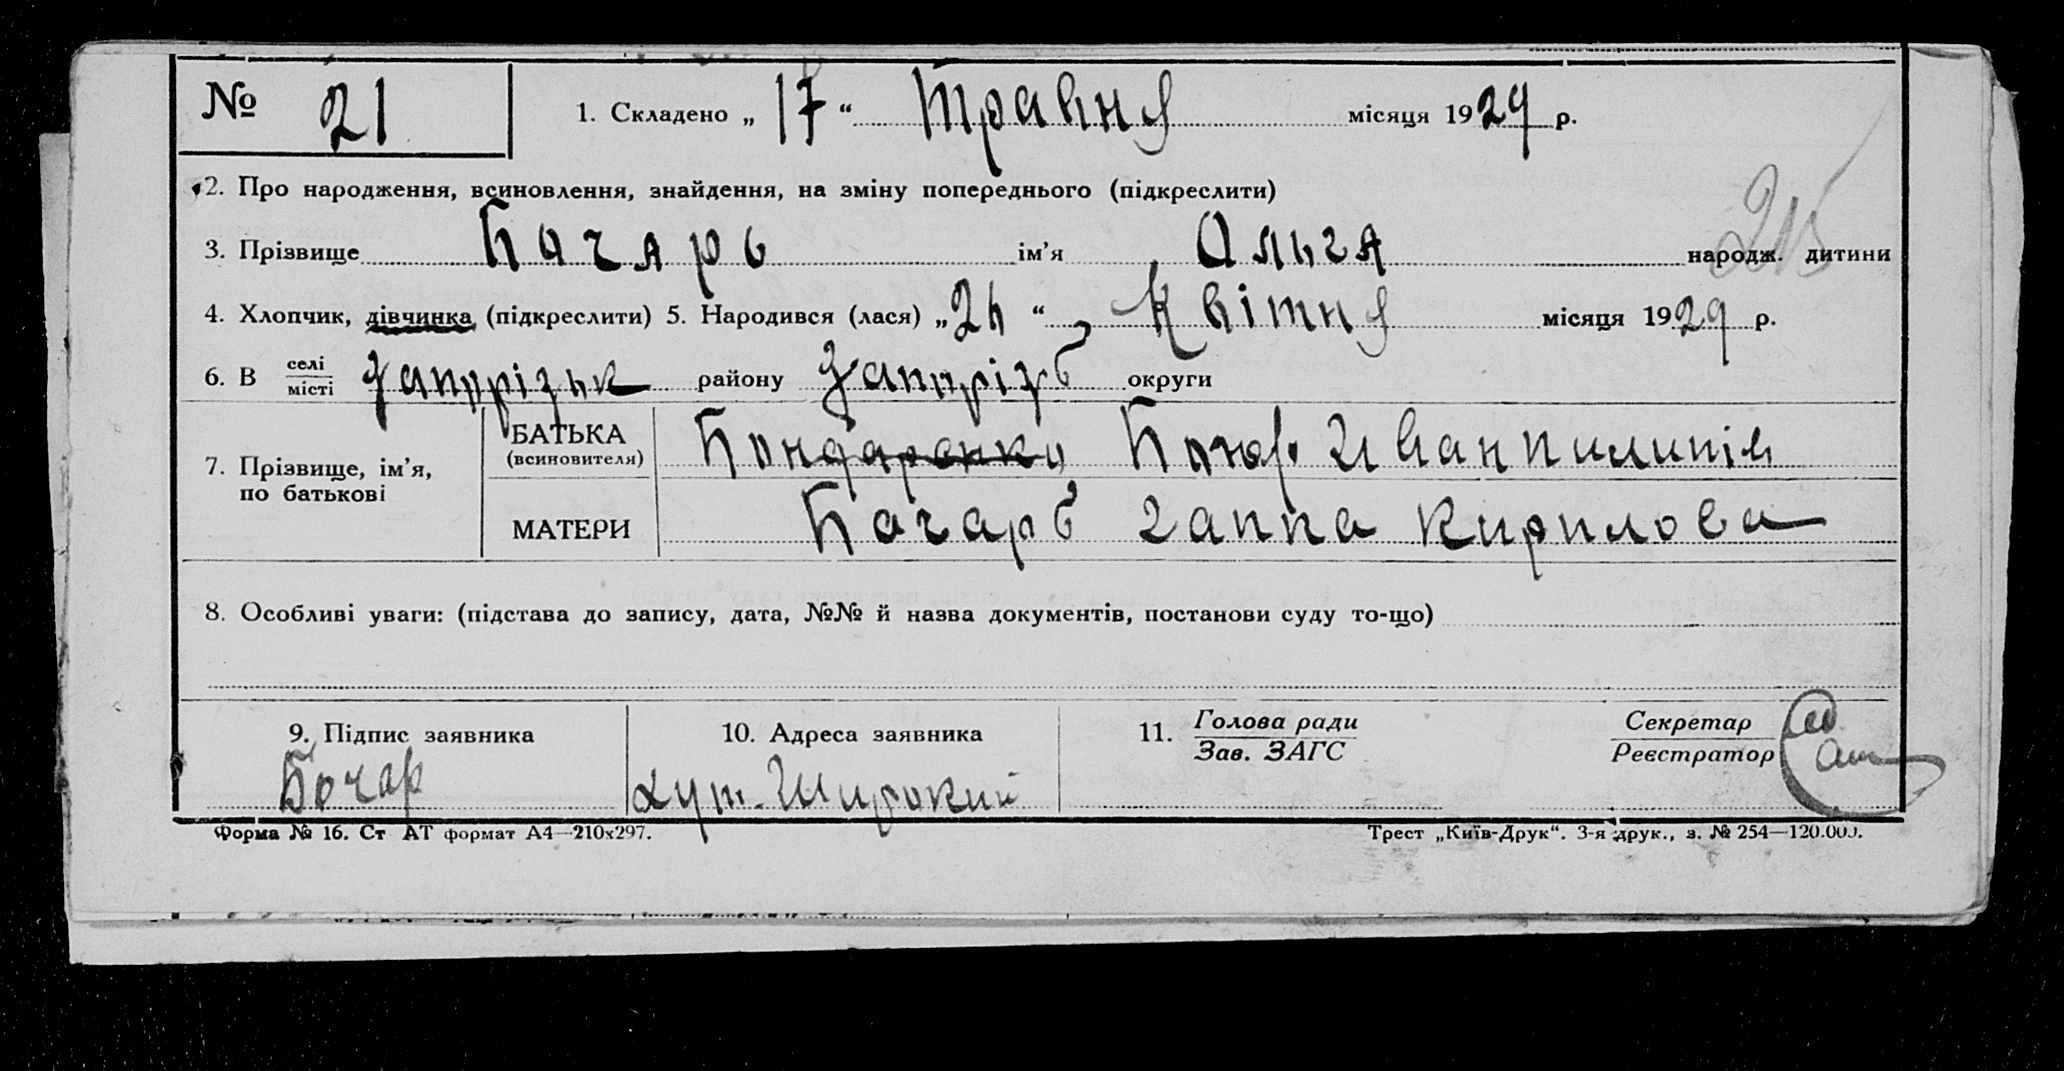 № 21
1. Складено „17“ Травня місяця 1929 р.
2. Про народження, всиновлення, знайдення, на зміну попереднього (підкреслити)
215
3. Прізвище Бочарь ім’я Ольга народж. дитини
4. Хлопчик, дівчинка (підкреслити) 5. Народився (лася) „24“ Квітня місяця 1929 р.
6. В селі місті Запорізьк району Запоріз округи
7. Прізвище, ім’я, по батькові
БАТЬКА (всиновителя) Бондаренко Бочар Иван Пилипів
МАТЕРИ Бочарь Ганна Кирилова
8. Особливі уваги: (підстава до запису, дата, №№ й назва документів, постанови суду то-що)
9. Підпис заявника
Бочар
10. Адреса заявника
хут. Широкий
11. Голова ради
Зав. ЗАГС
Секретар
Реєстратор
Форма № 16. Ст АТ формат А4—210х297.
Трест „Київ-Друк“. 3-я друк., з. № 254—120.000.